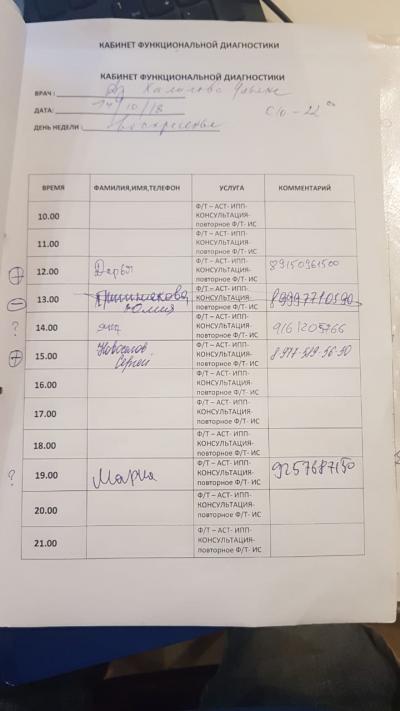 КАБИНЕТ ФУНКЦИОНАЛЬНОЙ ДИАГНОСТИКИ
КАБИНЕТ ФУНКЦИОНАЛЬНОЙ ДИАГНОСТИКИ
ВРАЧ :
ДАТА: 14/10/18 с 10 - 22 00
ДЕНЬ НЕДЕЛИ : Воскресенье
ВРЕМЯ ФАМИЛИЯ,ИМЯ,ТЕЛЕФОН УСЛУГА КОММЕНТАРИЙ
10.00 Ф/Т – АСТ- ИПП-
КОНСУЛЬТАЦИЯ-
повторное Ф/Т- ИС
11.00 Ф/Т – АСТ- ИПП-
КОНСУЛЬТАЦИЯ-
повторное Ф/Т- ИС
+ 12.00 Ф/Т – АСТ- ИПП-
КОНСУЛЬТАЦИЯ-
повторное Ф/Т- ИС 89150961500
– 13.00 Юлия Ф/Т – АСТ- ИПП-
КОНСУЛЬТАЦИЯ-
повторное Ф/Т- ИС 89997710590
? 14.00 Ф/Т – АСТ- ИПП-
КОНСУЛЬТАЦИЯ-
повторное Ф/Т- ИС 9161205766
+ 15.00 Новоселов Сергей Ф/Т – АСТ- ИПП-
КОНСУЛЬТАЦИЯ-
повторное Ф/Т- ИС
16.00 Ф/Т – АСТ- ИПП-
КОНСУЛЬТАЦИЯ-
повторное Ф/Т- ИС
17.00 Ф/Т – АСТ- ИПП-
КОНСУЛЬТАЦИЯ-
повторное Ф/Т- ИС
18.00 Ф/Т – АСТ- ИПП-
КОНСУЛЬТАЦИЯ-
повторное Ф/Т- ИС
? 19.00 Мария Ф/Т – АСТ- ИПП-
КОНСУЛЬТАЦИЯ-
повторное Ф/Т- ИС 9257687150
20.00 Ф/Т – АСТ- ИПП-
КОНСУЛЬТАЦИЯ-
повторное Ф/Т- ИС
21.00 Ф/Т – АСТ- ИПП-
КОНСУЛЬТАЦИЯ-
повторное Ф/Т- ИС